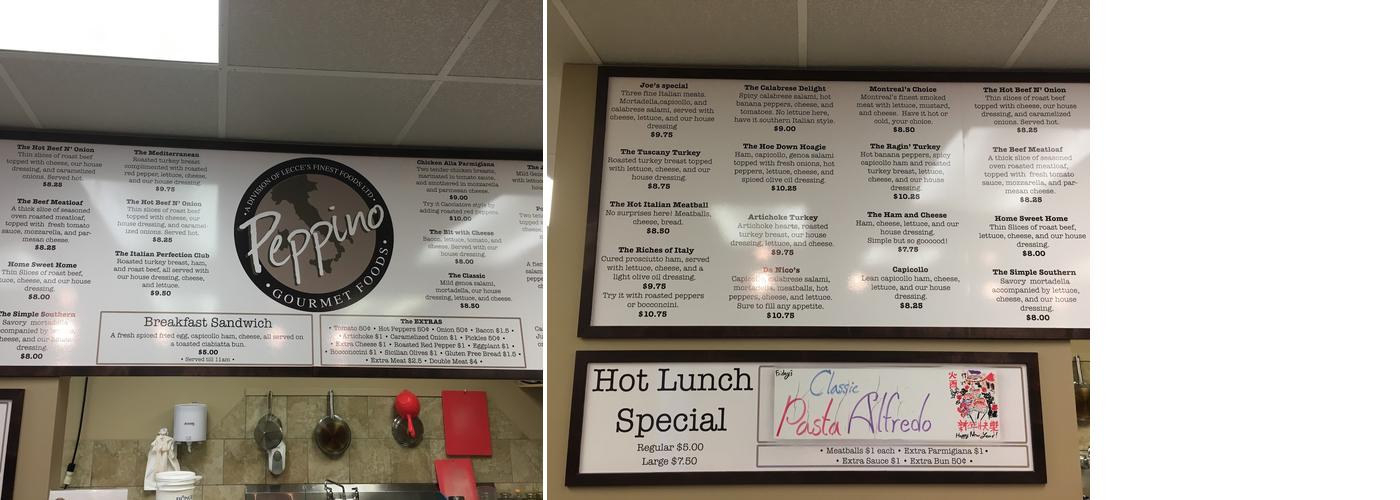 The Hot Beef N' Onion
Thin slices of roast beef
topped with cheese, our house
dressing, and caramelized
onions. Served hot.
$8.25
The Beef Meatloaf
A thick slice of seasoned
oven roasted meatloaf,
topped with fresh tomato
sauce, mozzarella, and par-
mesan cheese.
$8.25
Home Sweet Home
Thin Slices of roast beef,
lettuce, cheese, and our house
dressing.
$8.00
The Simple Southern
Savory mortadella
accompanied by lettuce,
cheese, and our house
dressing.
$8.00
The Mediterranean
Roasted turkey breast
complimented with roasted
red pepper, lettuce, cheese,
and our house dressing.
$9.75
The Hot Beef N' Onion
Thin slices of roast beef
topped with cheese, our
house dressing, and caramel-
ized onions. Served hot.
$8.25
The Italian Perfection Club
Roasted turkey breast, ham,
and roast beef, all served with
our house dressing, cheese,
and lettuce.
$9.50
• A DIVISION OF LECCE'S FINEST FOODS LTD •
Peppino
• GOURMET FOODS •
Chicken Alla Parmigiana
Two tender chicken breasts,
marinated in tomato sauce,
and smothered in mozzarella
and parmesan cheese.
$9.00
Try it Cacciatore style by
adding roasted red peppers.
$10.00
The Blt with Cheese
Bacon, lettuce, tomato, and
cheese. Served with our
house dressing.
$8.00
The Classic
Mild genoa salami,
mortadella, our house
dressing, lettuce, and cheese.
$8.50
Breakfast Sandwich
A fresh spiced fried egg, capicollo ham, cheese, all served on
a toasted ciabiatta bun.
$5.00
• Served till 11am •
The EXTRAS
• Tomato 50¢ • Hot Peppers 50¢ • Onion 50¢ • Bacon $1.5 •
• Artichoke $1 • Caramelized Onion $1 • Pickles 50¢ •
• Extra Cheese $1 • Roasted Red Pepper $1 • Eggplant $1 •
• Bocconcini $1 • Sicilian Olives $1 • Gluten Free Bread $1.5 •
• Extra Meat $2.5 • Double Meat $4 •
Joe's special
Three fine Italian meats.
Mortadella,capicollo, and
calabrese salami, served with
cheese, lettuce, and our house
dressing
$9.75
The Tuscany Turkey
Roasted turkey breast topped
with lettuce, cheese, and our
house dressing.
$8.75
The Hot Italian Meatball
No surprises here! Meatballs,
cheese, bread.
$8.50
The Riches of Italy
Cured prosciutto ham, served
with lettuce, cheese, and a
light olive oil dressing.
$9.75
Try it with roasted peppers
or bocconcini.
$10.75
The Calabrese Delight
Spicy calabrese salami, hot
banana peppers, cheese, and
tomatoes. No lettuce here,
have it southern Italian style.
$9.00
The Hoe Down Hoagie
Ham, capicollo, genoa salami
topped with fresh onions, hot
peppers, lettuce, cheese, and
spiced olive oil dressing.
$10.25
Artichoke Turkey
Artichoke hearts, roasted
turkey breast, our house
dressing, lettuce, and cheese.
$9.75
Da Nico's
Capicollo, calabrese salami,
mortadella, meatballs, hot
peppers, cheese, and lettuce.
Sure to fill any appetite.
$10.75
Montreal's Choice
Montreal's finest smoked
meat with lettuce, mustard,
and cheese. Have it hot or
cold, your choice.
$8.50
The Ragin' Turkey
Hot banana peppers, spicy
capicollo ham and roasted
turkey breast, lettuce,
cheese, and our house
dressing.
$10.25
The Ham and Cheese
Ham, cheese, lettuce, and our
house dressing.
Simple but so gooooood!
$7.75
Capicollo
Lean capicollo ham, cheese,
lettuce, and our house
dressing.
$8.25
The Hot Beef N' Onion
Thin slices of roast beef
topped with cheese, our house
dressing, and caramelized
onions. Served hot.
$8.25
The Beef Meatloaf
A thick slice of seasoned
oven roasted meatloaf,
topped with fresh tomato
sauce, mozzarella, and par-
mesan cheese.
$8.25
Home Sweet Home
Thin Slices of roast beef,
lettuce, cheese, and our house
dressing.
$8.00
The Simple Southern
Savory mortadella
accompanied by lettuce,
cheese, and our house
dressing.
$8.00
Hot Lunch
Special
Regular $5.00
Large $7.50
Classic
Pasta Alfredo
新年快樂
Happy New Year!
• Meatballs $1 each • Extra Parmigiana $1 •
• Extra Sauce $1 • Extra Bun 50¢ •